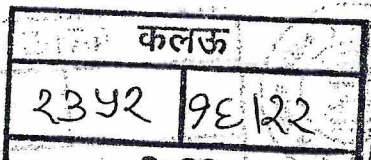 कलऊ
२३५२ १६/२२